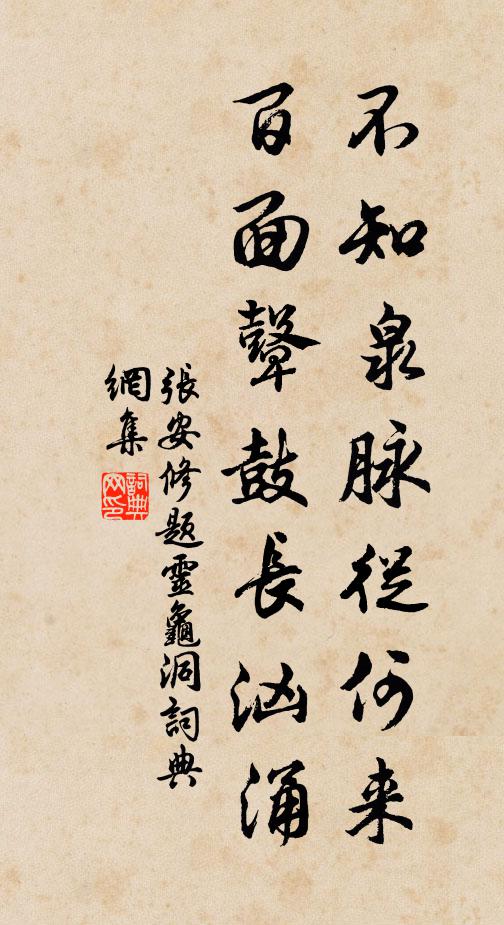 不知泉脉從何來
百面鼙鼓長洶涌
張安修題靈龜洞詞典
網集
詞典
网印